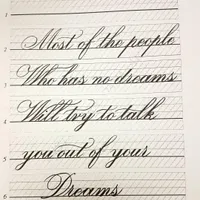 2 Most of the people
3 Who has no dreams
4 Will try to talk
5 you out of your
6 Dreams